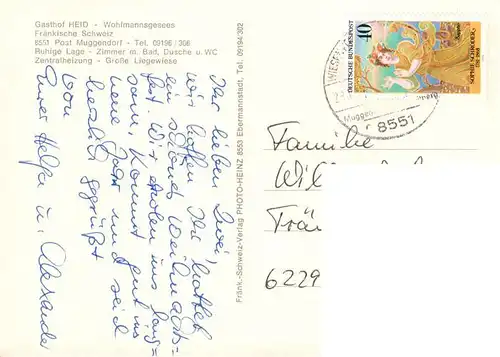 Gasthof HEID - Wohlmannsgesees
Fränkische Schweiz
8551 Post Muggendorf - Tel. 09196 / 306
Ruhige Lage - Zimmer m. Bad, Dusche u. WC
Zentralheizung - Große Liegewiese
Ihr lieben Zwei,
wir hoffen Ihr hattet
ein schönes Weihnachts-
fest. Wir ins
kommt gut ins
neue Jahr und seid
herzlich gegrüßt
von
Eurer Helga u. Alexander
Fränk.-Schweiz-Verlag PHOTO-HEINZ 8553 Ebermannstadt, Tel. 09194/302
DEUTSCHE BUNDESPOST
40
SOPHIE SCHRÖDER
Sappho
WIESEN
Muggen
8551
Familie
Wil
Frän
6229